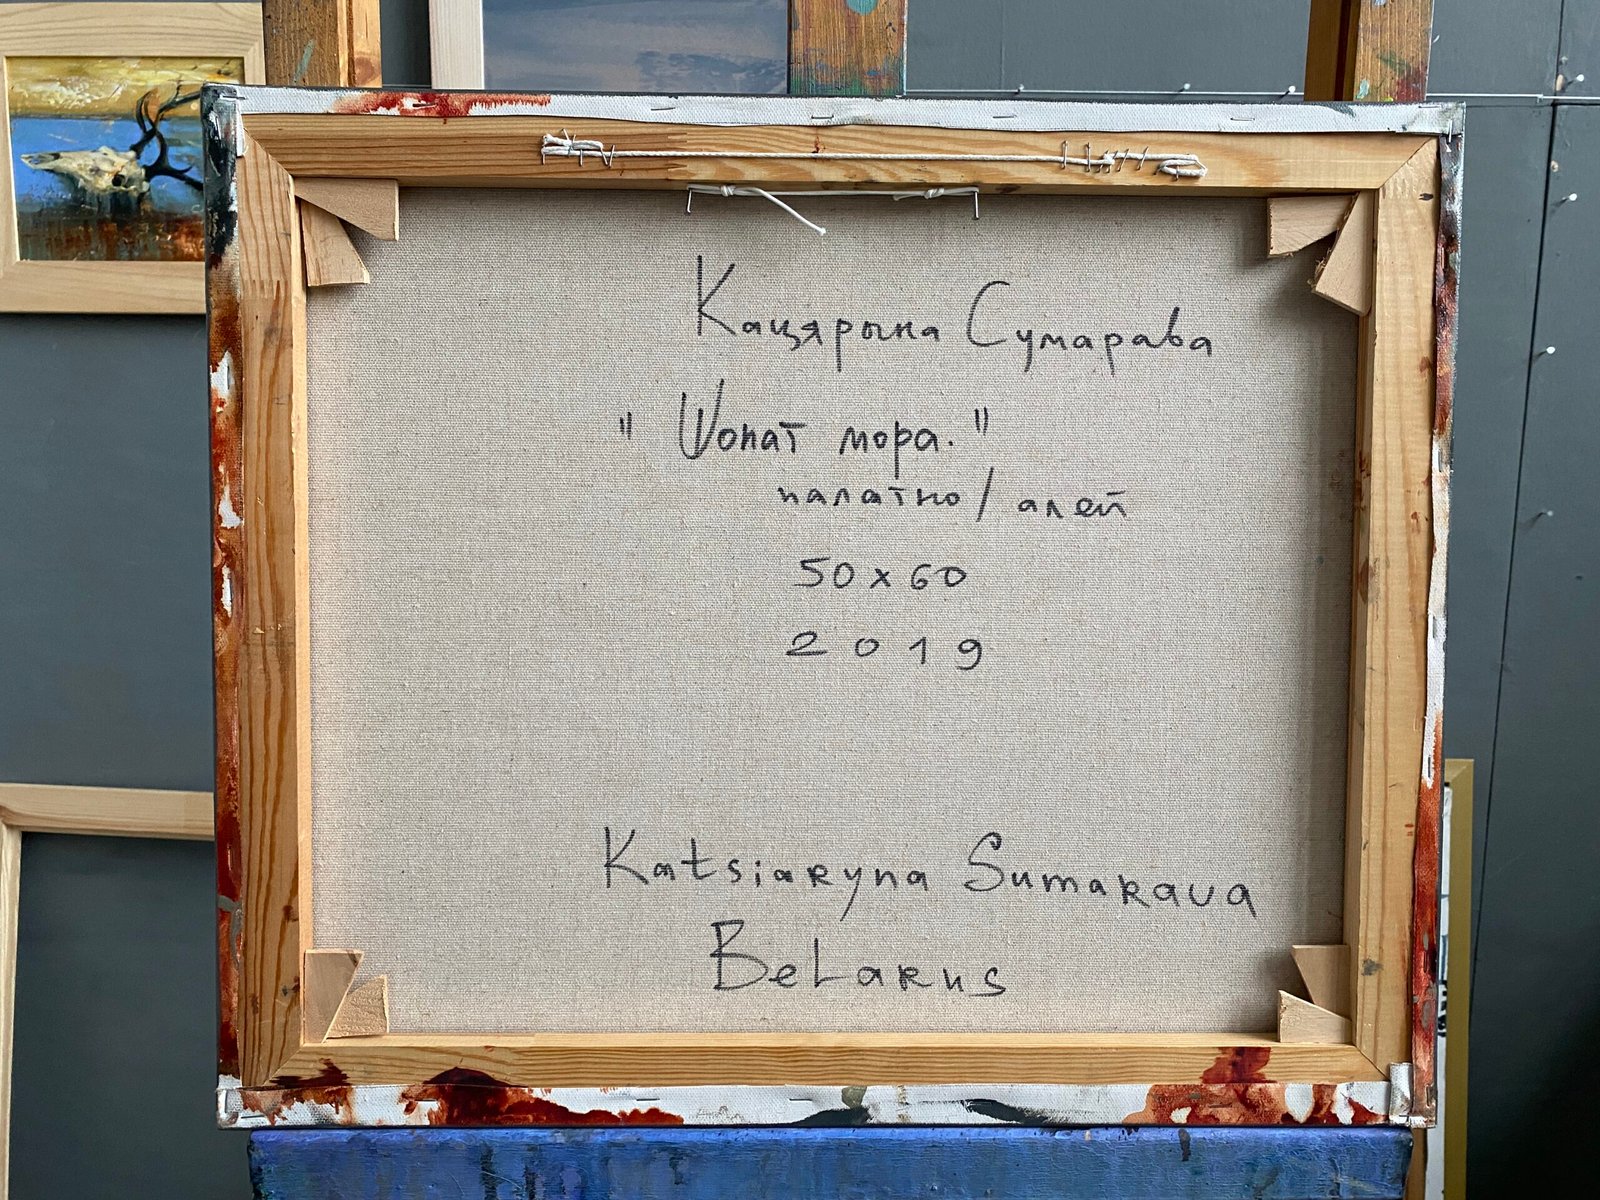 Кацярына Сумарава
"Шопат мора."
палатно / алей
50 х 60
2019
Katsiaryna Sumarava
Belarus